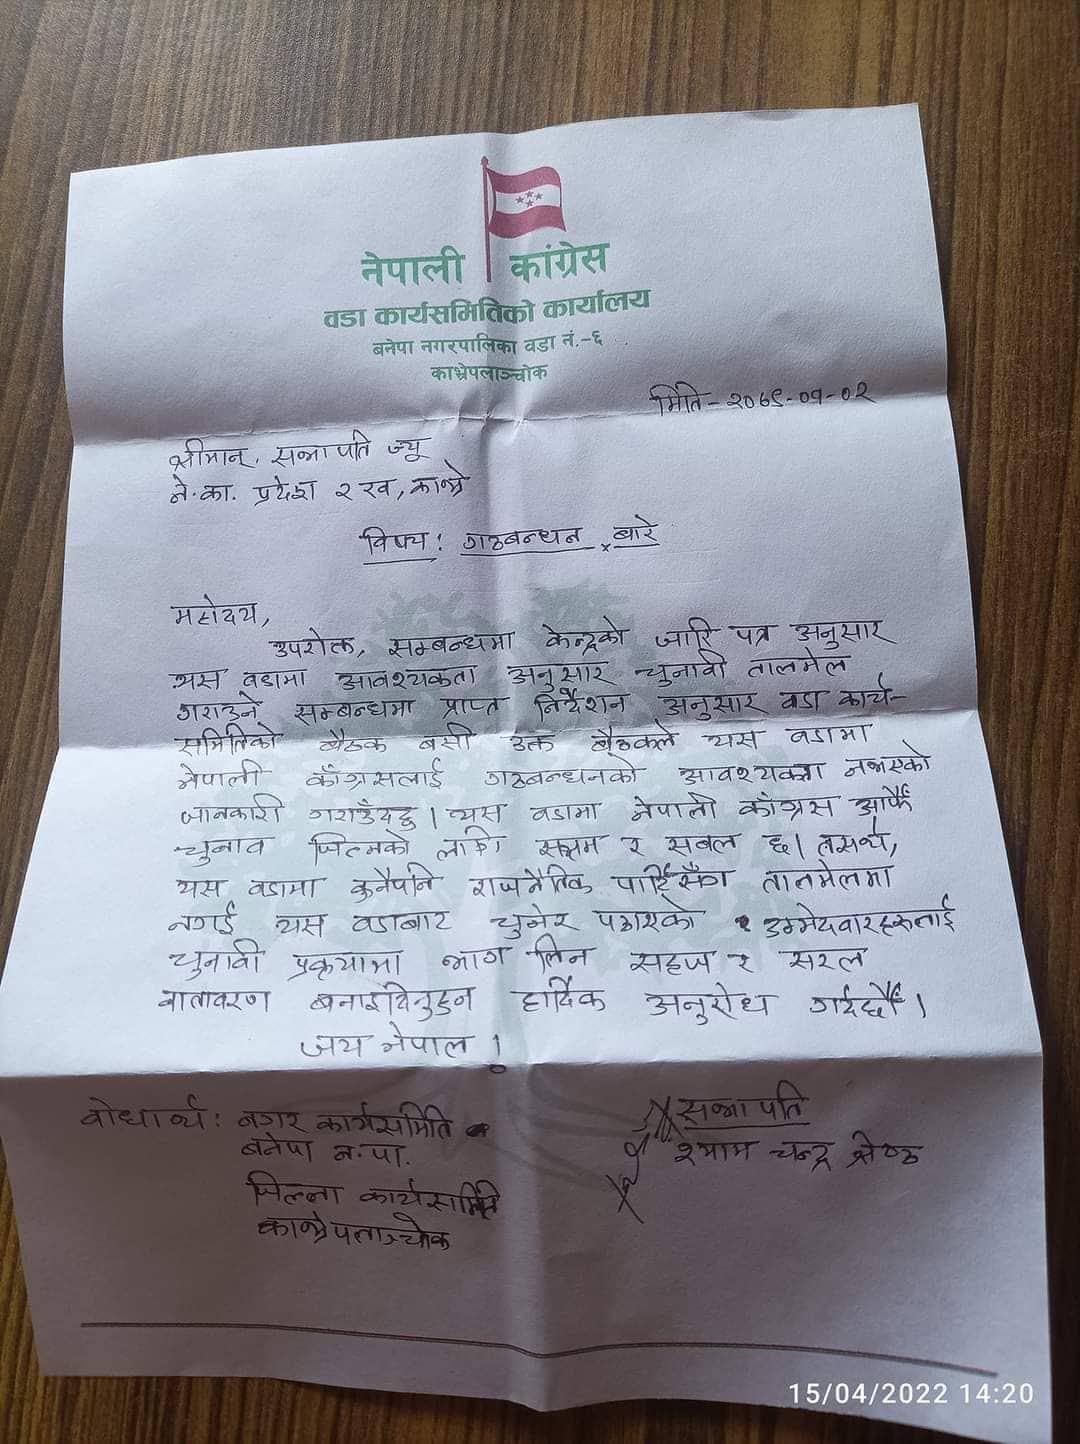 नेपाली कांग्रेस
वडा कार्यसमितिको कार्यालय
बनेपा नगरपालिका वडा नं.-६
काभ्रेपलाञ्चोक
मिति-२०७९-०१-०२
श्रीमान्, सभापति ज्यू
ने.का. प्रदेश २ ख, काभ्रे
विषय: गठबन्धन बारे
महोदय,
उपरोक्त, सम्बन्धमा केन्द्रको जारि पत्र अनुसार
यस वडामा आवश्यकता अनुसार चुनावी तालमेल
गराउने सम्बन्धमा प्राप्त निर्देशन अनुसार वडा कार्य-
समितिको बैठक बसी उक्त बैठकले यस वडामा
नेपाली काँग्रेसलाई गठबन्धनको आवश्यकता नभएको
जानकारी गराउँदछु। यस वडामा नेपाली काँग्रेस आफैं
चुनाव जित्नको लागि सक्षम र सबल छ। तसर्थ,
यस वडामा कुनैपनि राजनैतिक पार्टिसँग तालमेलमा
नगई यस वडाबाट चुनेर पठाएको उम्मेदवारहरूलाई
चुनावी प्रकृयामा भाग लिन सहज र सरल
वातावरण बनाइदिनुहुन हार्दिक अनुरोध गर्दछौं।
जय नेपाल !
वोधार्थ: नगर कार्यसमिति
बनेपा न.पा.
जिल्ला कार्यसमिति
काभ्रेपलाञ्चोक
सभापति
श्याम चन्द्र श्रेष्ठ
15/04/2022 14:20